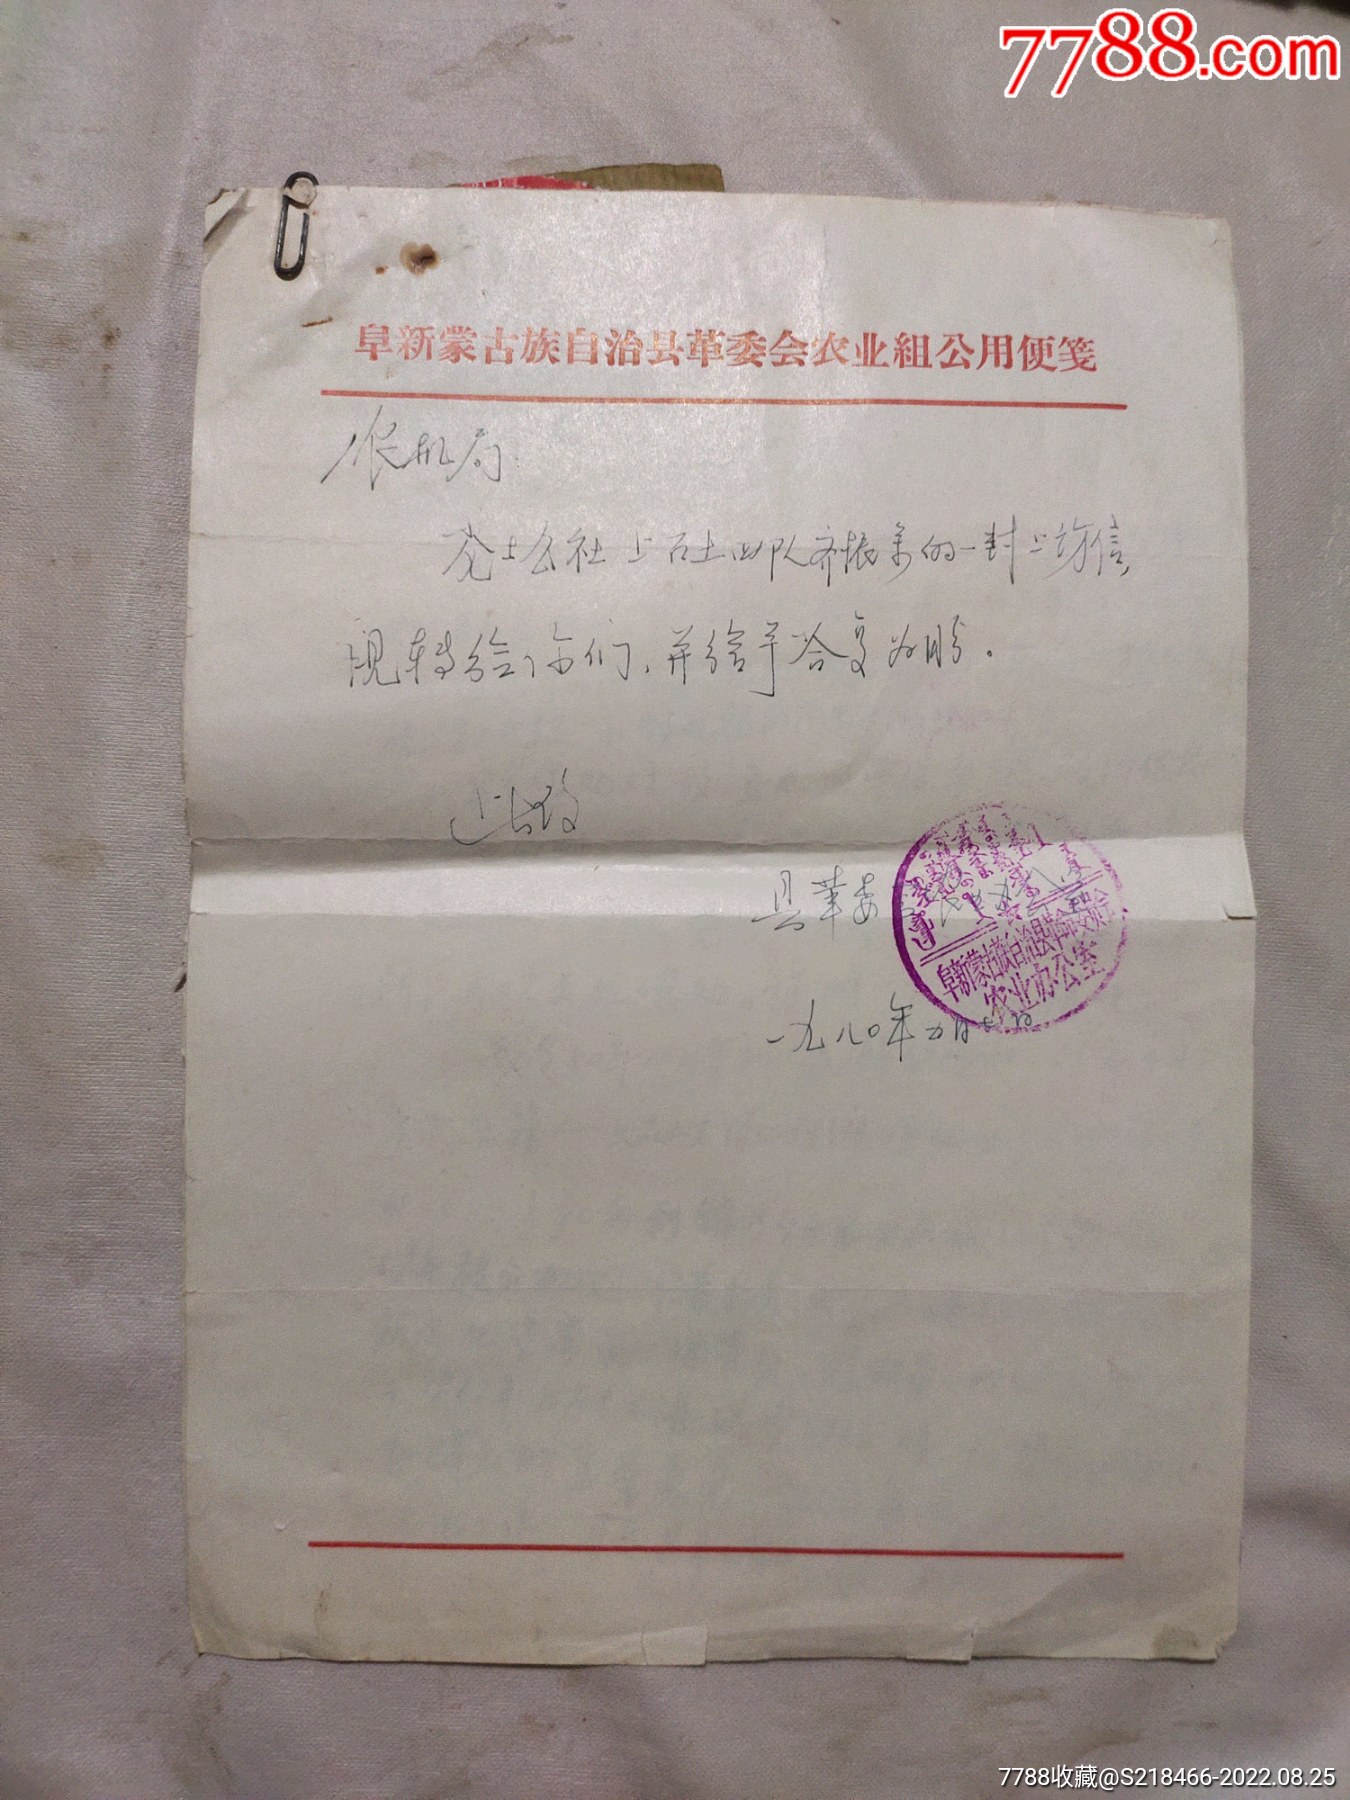 7788.com
阜新蒙古族自治县革委会农业組公用便笺
农机局:
公社上石土四队齐振 的一封上访信,
现转给你们,并给予答复为盼。
此致
县革委 农业办公室
阜新蒙古族自治县革命委员会
农业办公室
一九八〇年五月 日
7788收藏@S218466-2022.08.25